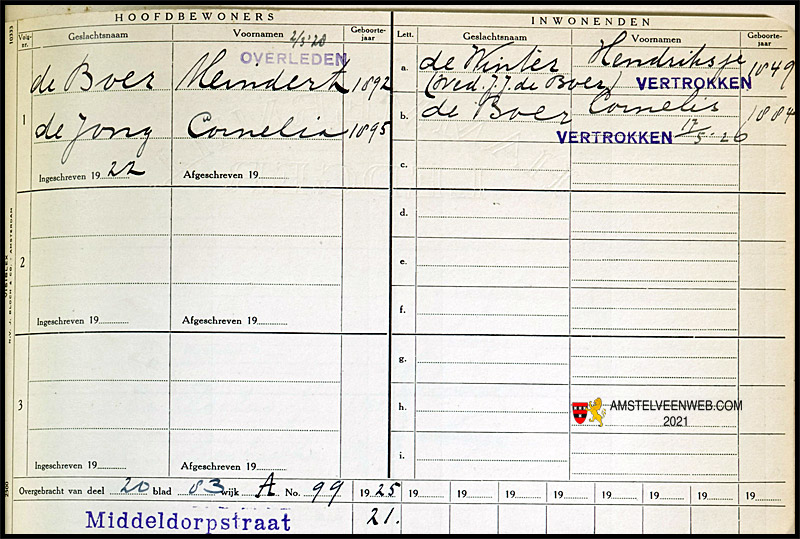 HOOFDBEWONERS
Volg-nr.
Geslachtsnaam
Voornamen 2/3'28
Geboorte-jaar
OVERLEDEN
1
de Boer Meindert 1892
de Jong Cornelia 1895
Ingeschreven 19 22 Afgeschreven 19
2
Ingeschreven 19 Afgeschreven 19
3
Ingeschreven 19 Afgeschreven 19
INWONENDEN
Lett.
Geslachtsnaam
Voornamen
Geboorte-jaar
a. de Winter Hendriksje 1849
(wed. J.J. de Boer) VERTROKKEN
b. de Boer Cornelis 1884
VERTROKKEN 17/5'26
c.
d.
e.
f.
g.
h.
i.
AMSTELVEENWEB.COM
2021
Overgebracht van deel 20 blad 83 wijk A No. 99 19 25 19 19 19 19 19 19 19 19
Middeldorpstraat 21.
10333
2500